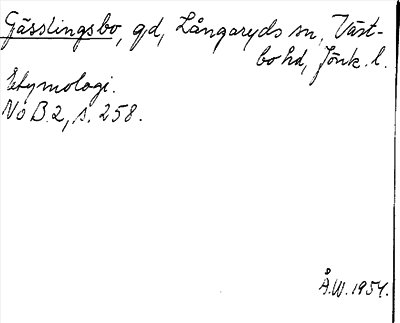 Gässlingsbo, gd, Långaryds sn, Väst-
bo hd, Jönk. l.
Etymologi.
NoB. 2, s. 258.
Å.W. 1954.